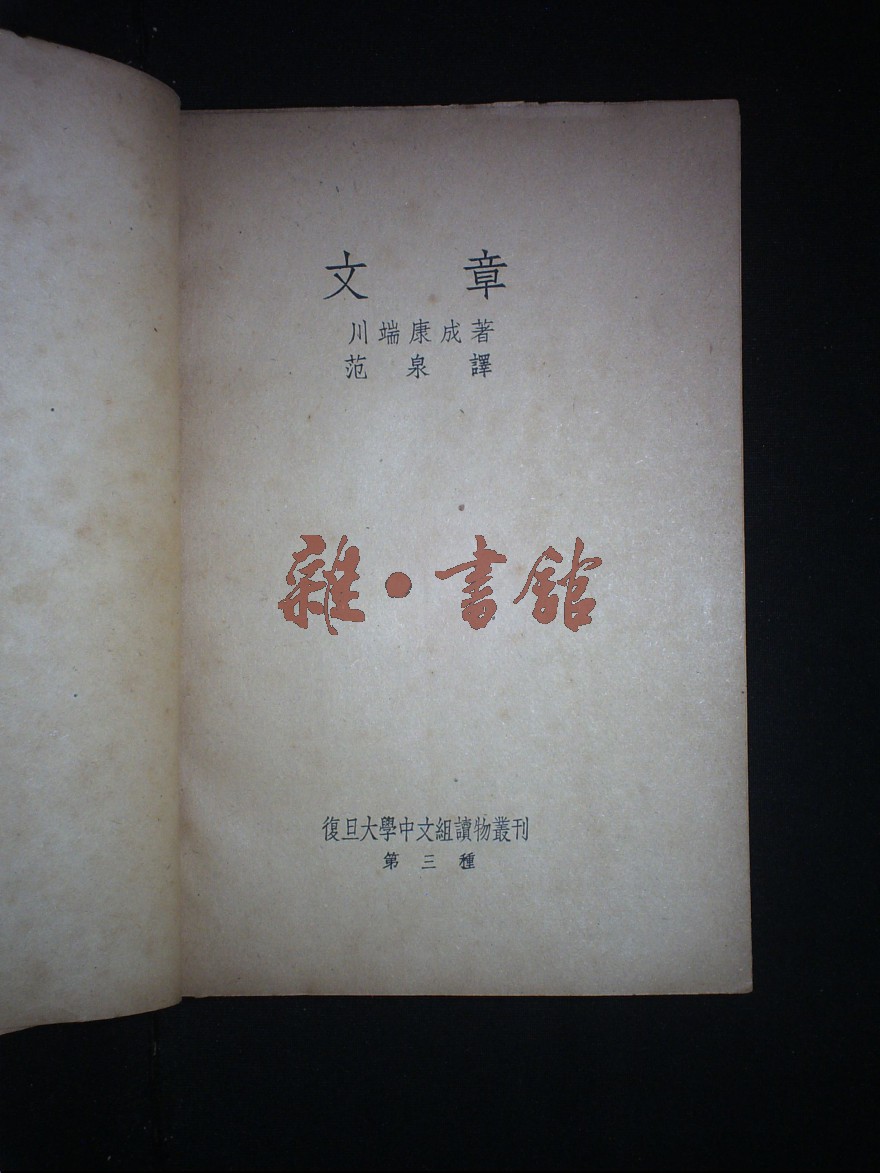 文章
川端康成著
范泉譯
雜·書館
復旦大學中文組讀物叢刊
第三種